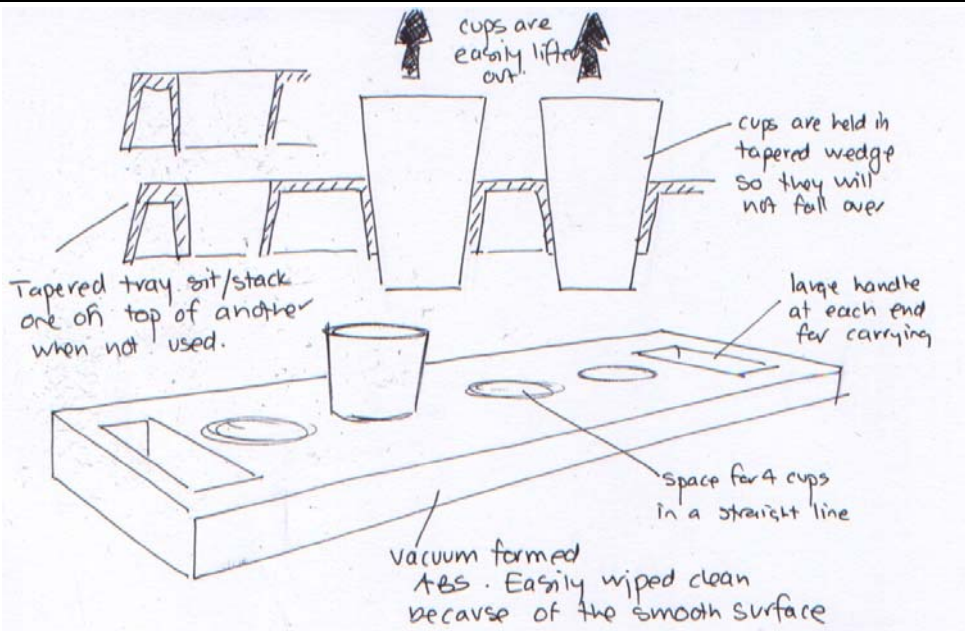 cups are
easily lifted
out
cups are held in
tapered wedge
so they will
not fall over
Tapered tray sit/stack
one on top of another
when not used.
large handle
at each end
for carrying
space for 4 cups
in a straight line
vacuum formed
ABS. Easily wiped clean
because of the smooth surface